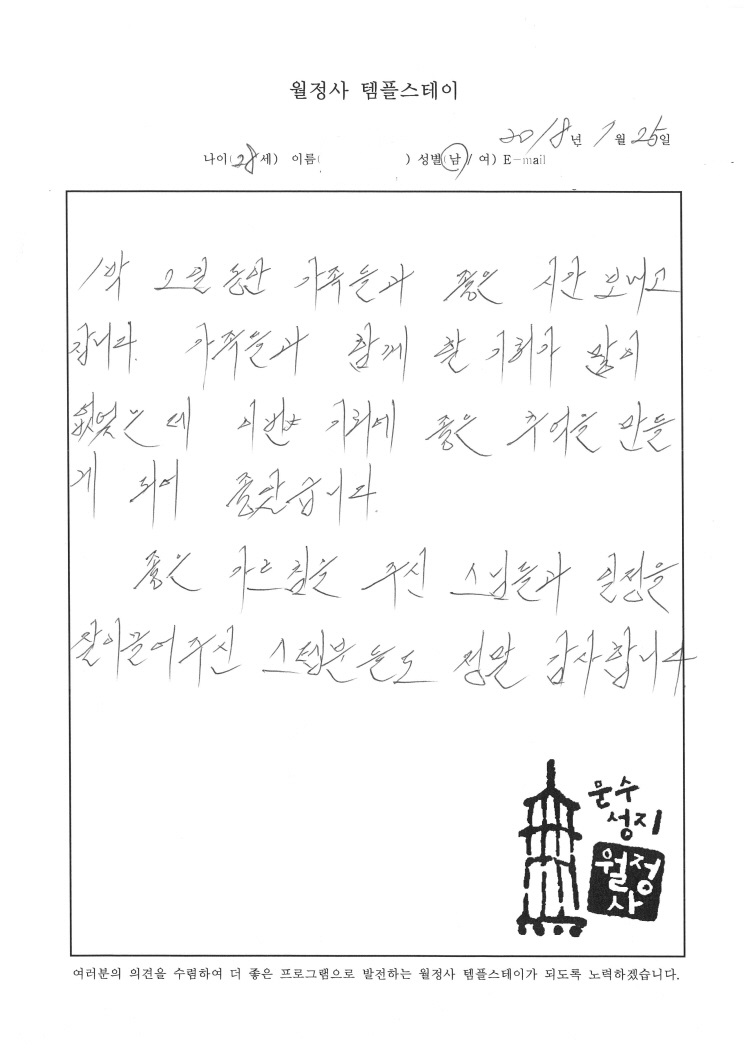 월정사 템플스테이
2018년 7월 25일
나이(28세) 이름( ) 성별(남/ 여) E-mail
1박 2일 동안 가족들과 좋은 시간 보내고
갑니다. 가족들과 함께 할 기회가 많이
없었는데 이번 기회에 좋은 추억을 만들
게 되어 좋았습니다.
좋은 가르침을 주신 스님들과 일정을
잘 이끌어주신 스텝분들도 정말 감사합니다
문수
성지
월정
사
여러분의 의견을 수렴하여 더 좋은 프로그램으로 발전하는 월정사 템플스테이가 되도록 노력하겠습니다.